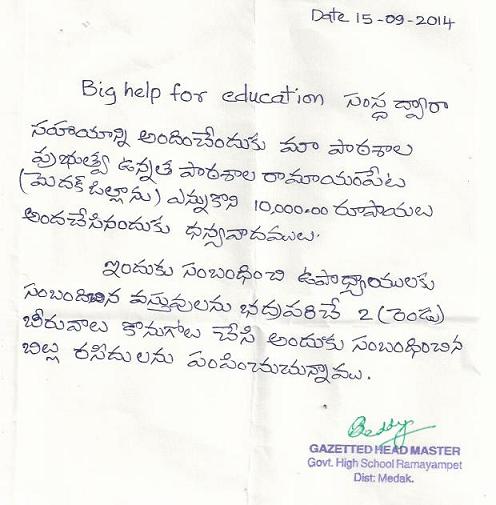 Date 15-09-2014
Big help for education సంస్థ ద్వారా
సహాయాన్ని అందించేందుకు మా పాఠశాల
ప్రభుత్వ ఉన్నత పాఠశాల రామాయంపేట
(మెదక్ జిల్లాను) ఎన్నుకొని 10,000.00 రూపాయలు
అందచేసినందుకు ధన్యవాదములు.
ఇందుకు సంబంధించి ఉపాధ్యాయులకు
సంబంధించిన వస్తువులను భద్రపరిచే 2 (రెండు)
బీరువాలు కొనుగోలు చేసి అందుకు సంబంధించిన
బిల్లు రసీదులను పంపించుచున్నాము.
Reddy
GAZETTED HEAD MASTER
Govt. High School Ramayampet
Dist: Medak.